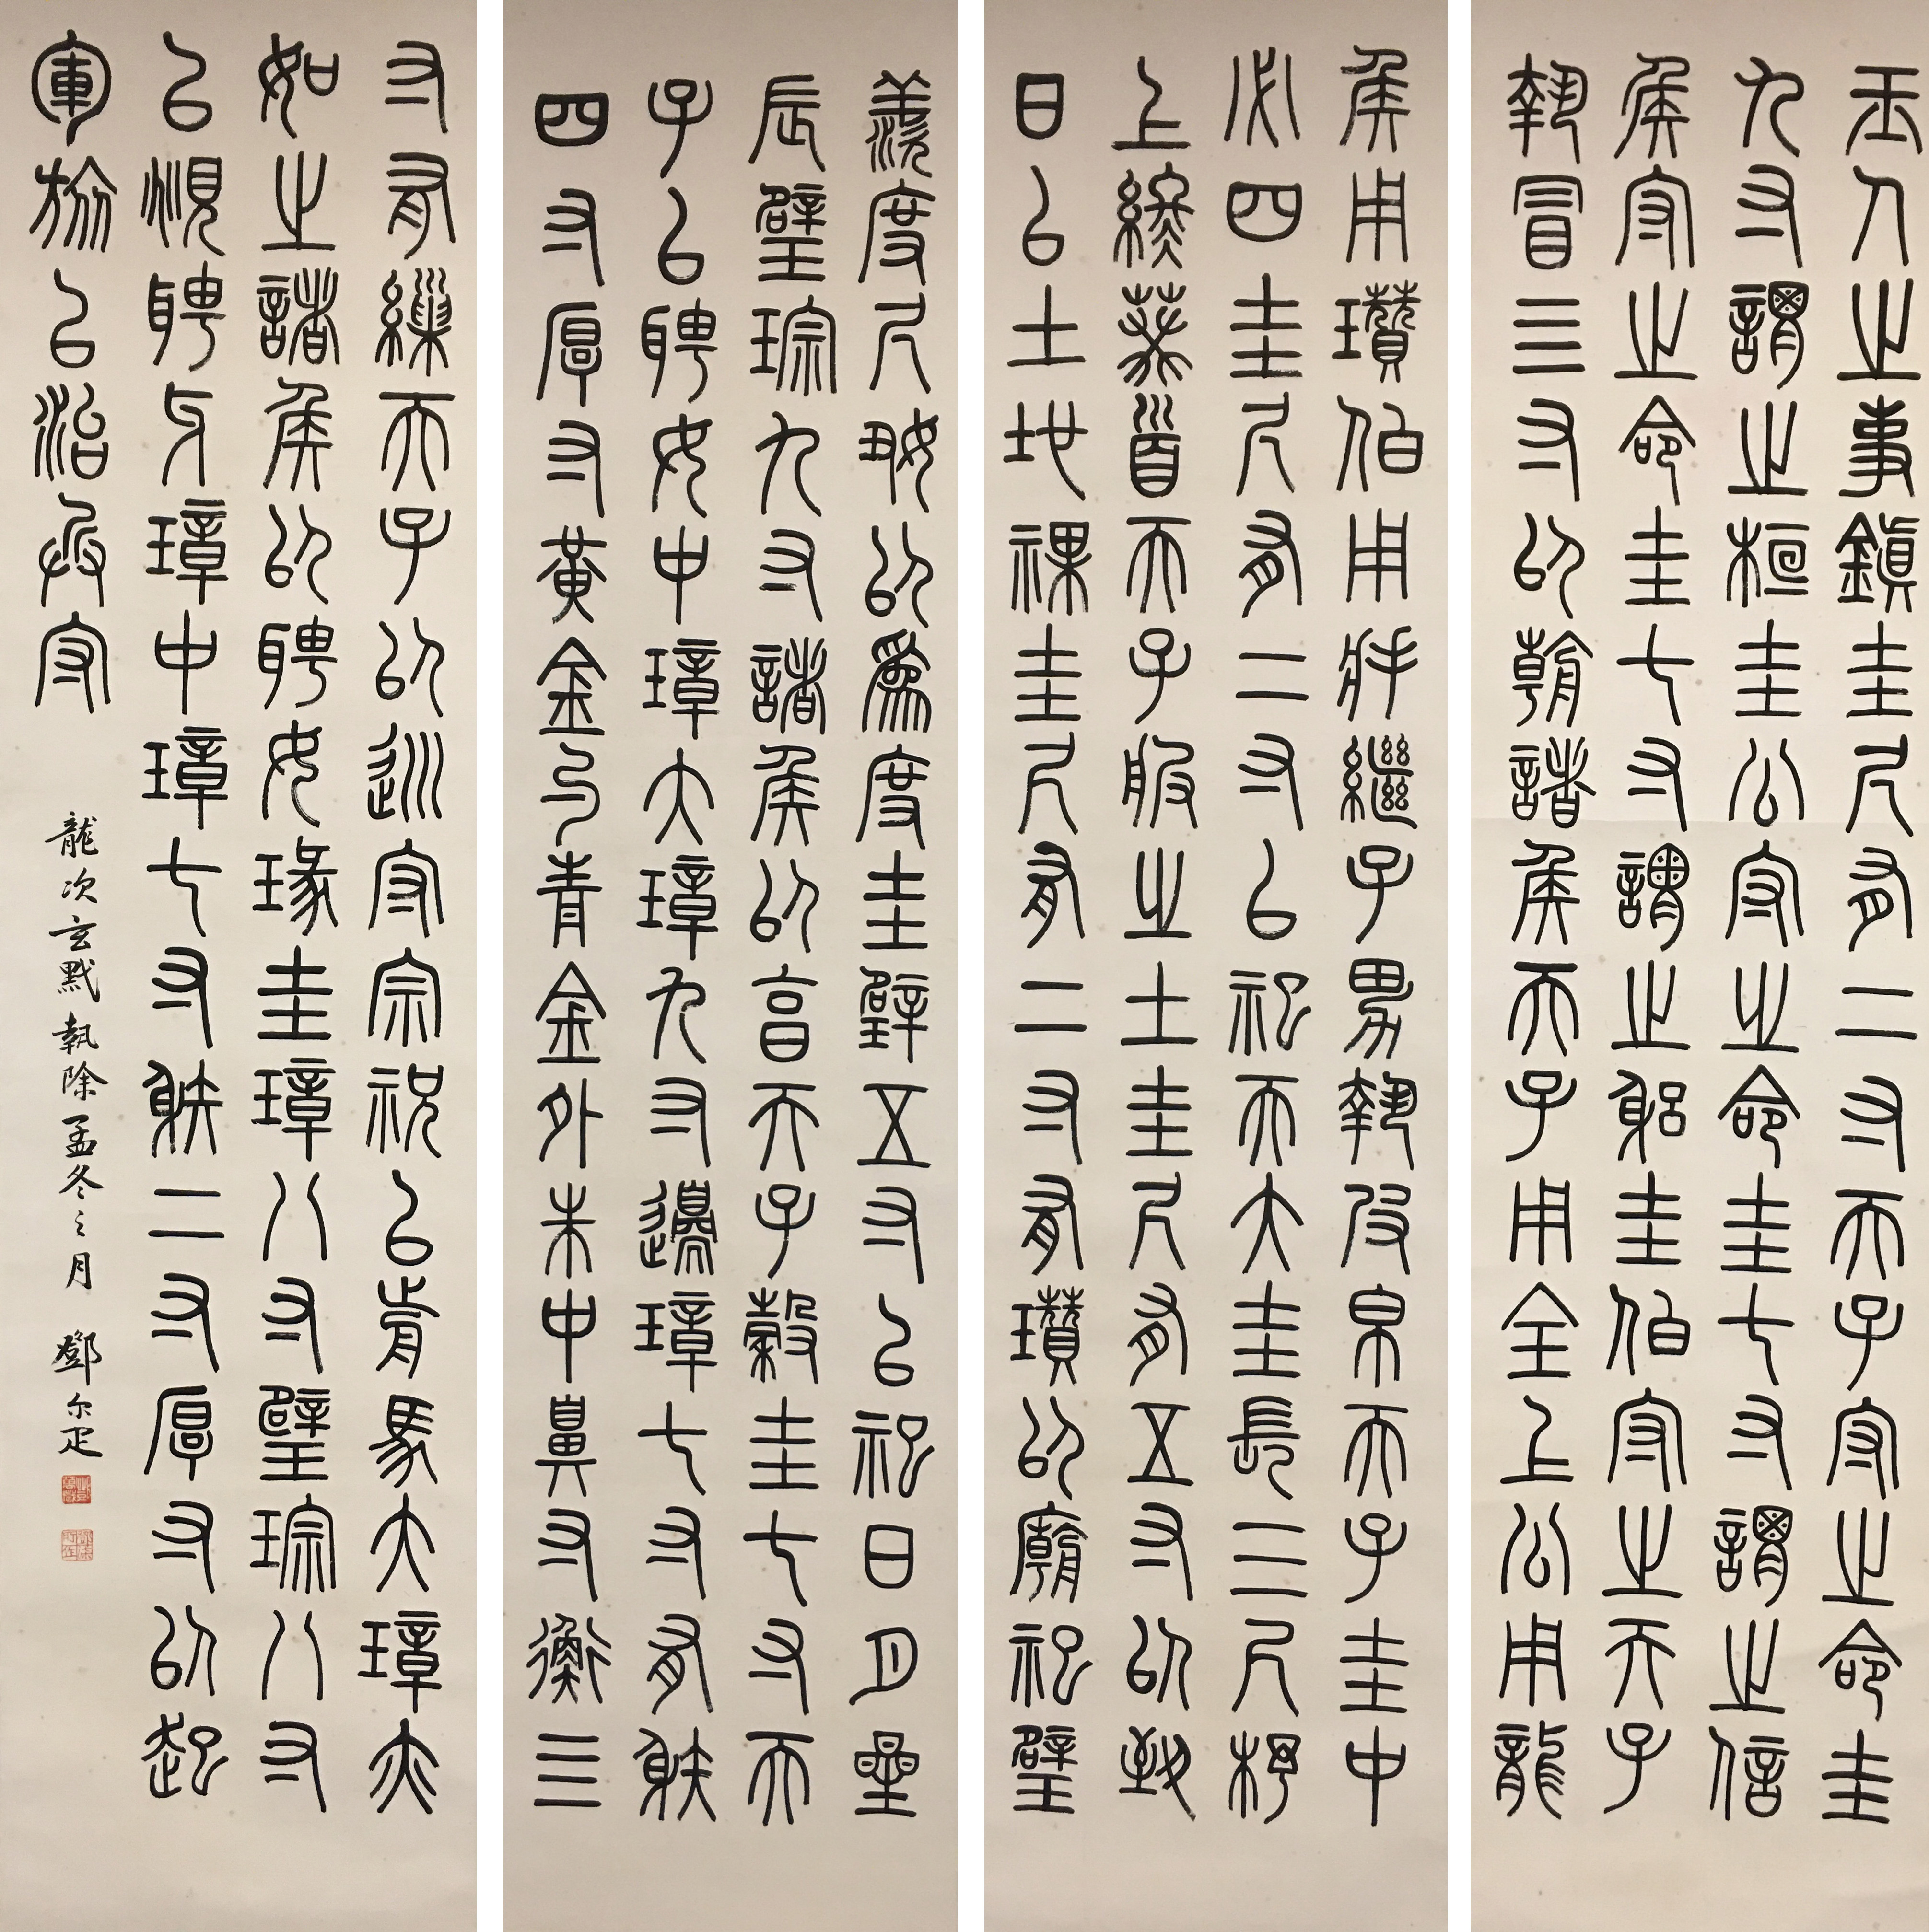 玉人之事鎮圭尺有二寸天子守之命圭
九寸謂之桓圭公守之命圭七寸謂之信
侯守之命圭七寸謂之躳圭伯守之天子
執冒四寸以朝諸侯天子用全上公用龍
侯用瓚伯用將繼子男執皮帛天子圭中
必四圭尺有二寸以祀天大圭長三尺杼
上終葵首天子服之土圭尺有五寸以致
日以土地祼圭尺有二寸有瓚以廟祀璧
羨度尺好以為度圭璧五寸以祀日月星
辰璧琮九寸諸侯以享天子穀圭七寸天
子以聘女中璋大璋九寸邊璋七寸有射
四寸厚寸黃金勺青金外朱中鼻寸衡四
寸有繅天子以巡守宗祝以前馬大璋亦
如之諸侯以聘女瑑圭璋八寸璧琮八寸
以覜聘牙璋中璋七寸射二寸厚寸以起
軍旅以治兵守
龍次玄黓執除孟冬之月 鄧尔疋